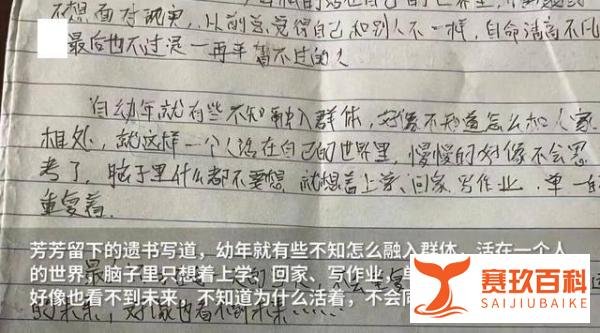 不想面对现实，以前总觉得自己和别人不一样，自命清高不凡
最后也不过是一再平庸不过的人
自幼年就有些不知融入群体，好像不知道怎么和人家
相处，就这样一个人活在自己的世界里，慢慢的好像不会思
考了，脑子里什么都不要想，就想着上学、回家、写作业，单一的
重复着
芳芳留下的遗书写道，幼年就有些不知怎么融入群体，活在一个人
的世界，脑子里只想着上学、回家、写作业
好像也看不到未来，不知道为什么活着，不会
赛玖百科
SAIJIUBAIKE